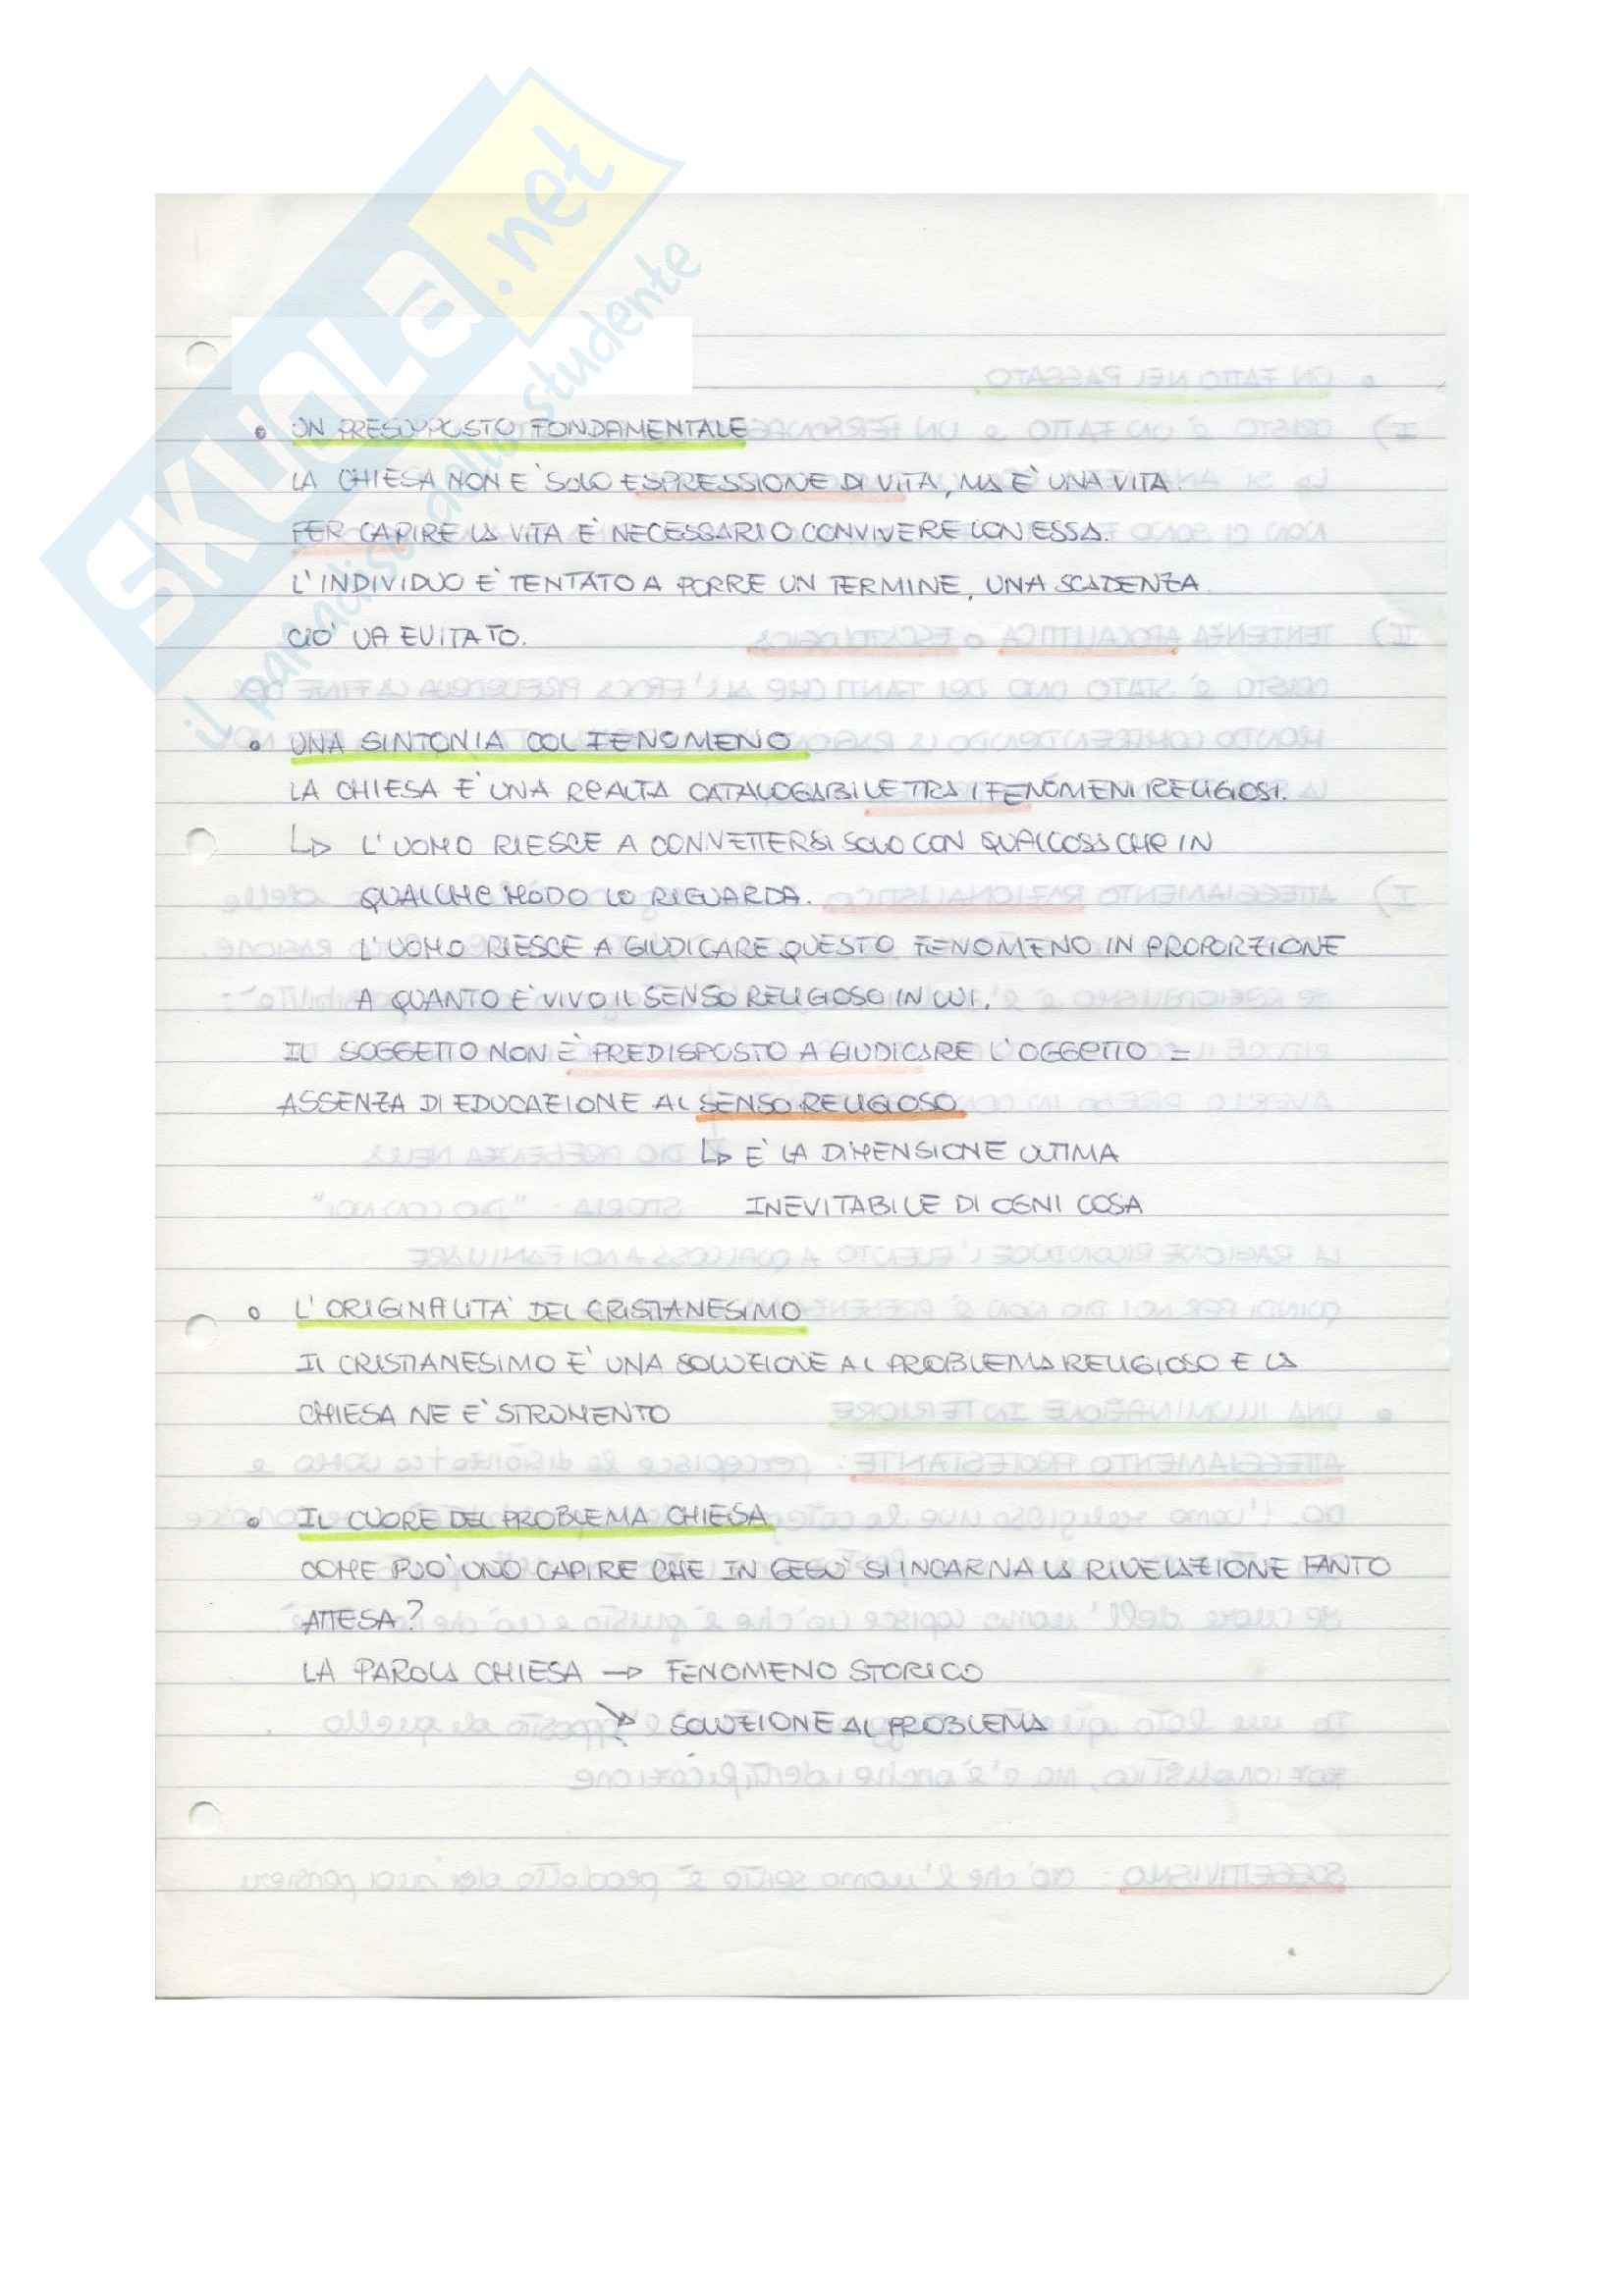 SKUOLA.net
il paradiso dello studente
UN PRESUPPOSTO FONDAMENTALE
LA CHIESA NON E' SOLO ESPRESSIONE DI VITA, MA E' UNA VITA.
PER CAPIRE LA VITA E' NECESSARIO CONVIVERE CON ESSA.
L'INDIVIDUO E' TENTATO A PORRE UN TERMINE, UNA SCADENZA.
CIO' VA EVITATO.
UNA SINTONIA COL FENOMENO
LA CHIESA E' UNA REALTA CATALOGABILE TRA I FENOMENI RELIGIOSI.
↳ L'UOMO RIESCE A CONNETTERSI SOLO CON QUALCOSA CHE IN
QUALCHE MODO LO RIGUARDA.
L'UOMO RIESCE A GIUDICARE QUESTO FENOMENO IN PROPORZIONE
A QUANTO E' VIVO IL SENSO RELIGIOSO IN LUI.
IL SOGGETTO NON E' PREDISPOSTO A GIUDICARE L'OGGETTO =
ASSENZA DI EDUCAZIONE AL SENSO RELIGIOSO
↳ E' LA DIMENSIONE ULTIMA
INEVITABILE DI OGNI COSA
L'ORIGINALITA' DEL CRISTIANESIMO
IL CRISTIANESIMO E' UNA SOLUZIONE AL PROBLEMA RELIGIOSO E LA
CHIESA NE E' STRUMENTO
IL CUORE DEL PROBLEMA CHIESA
COME PUO' UNO CAPIRE CHE IN GESU' SI INCARNA LA RIVELAZIONE TANTO
ATTESA?
LA PAROLA CHIESA → FENOMENO STORICO
↘ SOLUZIONE AL PROBLEMA